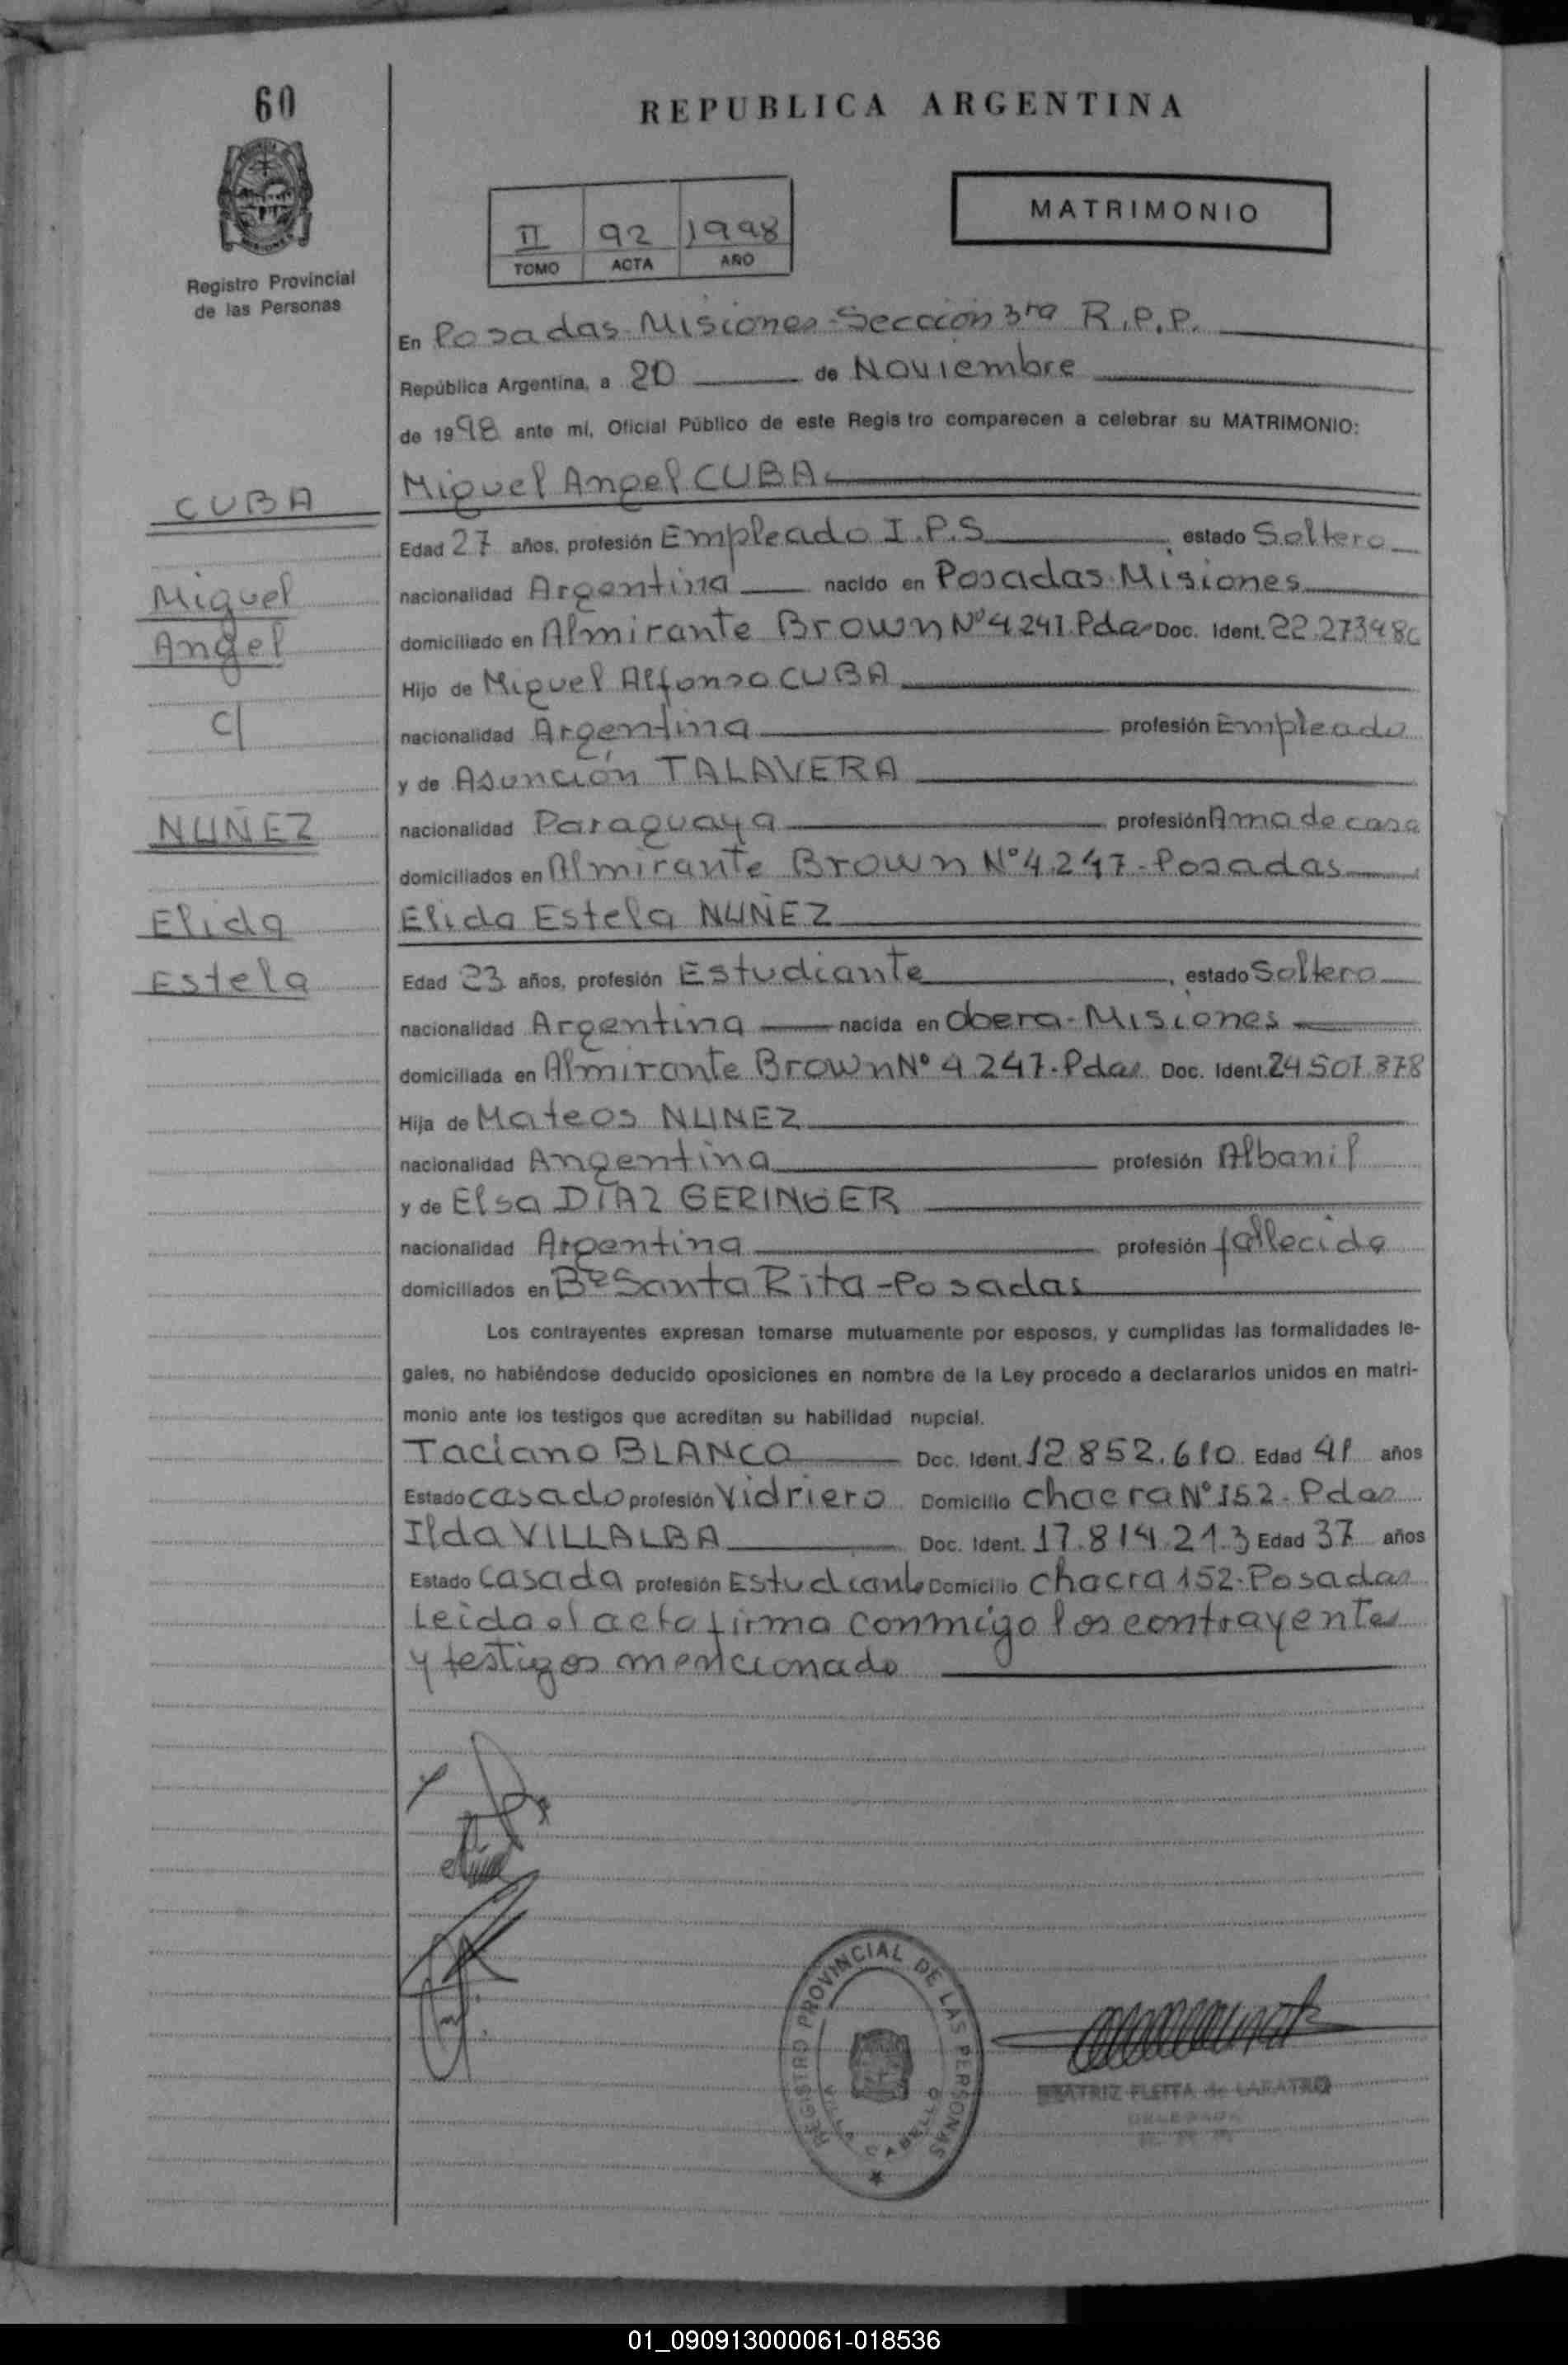 60
REPUBLICA ARGENTINA
MATRIMONIO
II 92 1998
TOMO ACTA AÑO
Registro Provincial
de las Personas
En Posadas-Misiones-Sección 3ra R.P.P.
República Argentina, a 20 de Noviembre
de 1998 ante mí, Oficial Público de este Regis tro comparecen a celebrar su MATRIMONIO:
CUBA
Miguel Angel CUBA
Edad 27 años, profesión Empleado I.P.S, estado Soltero
Miguel
nacionalidad Argentina nacido en Posadas-Misiones
Angel
domiciliado en Almirante Brown Nº 4247.Pdas Doc. Ident. 22.273.486
Hijo de Miguel Alfonso CUBA
c/
nacionalidad Argentina profesión Empleado
y de Asunción TALAVERA
NUÑEZ
nacionalidad Paraguaya profesión Ama de casa
domiciliados en Almirante Brown Nº 4.247-Posadas
Elida
Elida Estela NUÑEZ
Estela
Edad 23 años, profesión Estudiante, estado Soltero
nacionalidad Argentina nacida en Obera-Misiones
domiciliada en Almirante Brown Nº 4.247-Pdas Doc. Ident. 24.507.378
Hija de Mateos NUNEZ
nacionalidad Angentina profesión Albanil
y de Elsa DIAZ GERINGER
nacionalidad Argentina profesión fallecida
domiciliados en Bº Santa Rita-Posadas
Los contrayentes expresan tomarse mutuamente por esposos, y cumplidas las formalidades le-
gales, no habiéndose deducido oposiciones en nombre de la Ley procedo a declararlos unidos en matri-
monio ante los testigos que acreditan su habilidad nupcial.
Taciano BLANCO Doc. Ident. 12.852.610 Edad 41 años
Estado casado profesión Vidriero Domicilio chacra Nº 152-Pdas
Ilda VILLALBA Doc. Ident. 17.814.213 Edad 37 años
Estado Casada profesión Estudiante Domicilio chacra 152-Posadas
Leida el acta firma conmigo los contrayentes
y testigos mencionado
REGISTRO PROVINCIAL DE LAS PERSONAS
BEATRIZ FLEITA de
DELEGADA
01_090913000061-018536